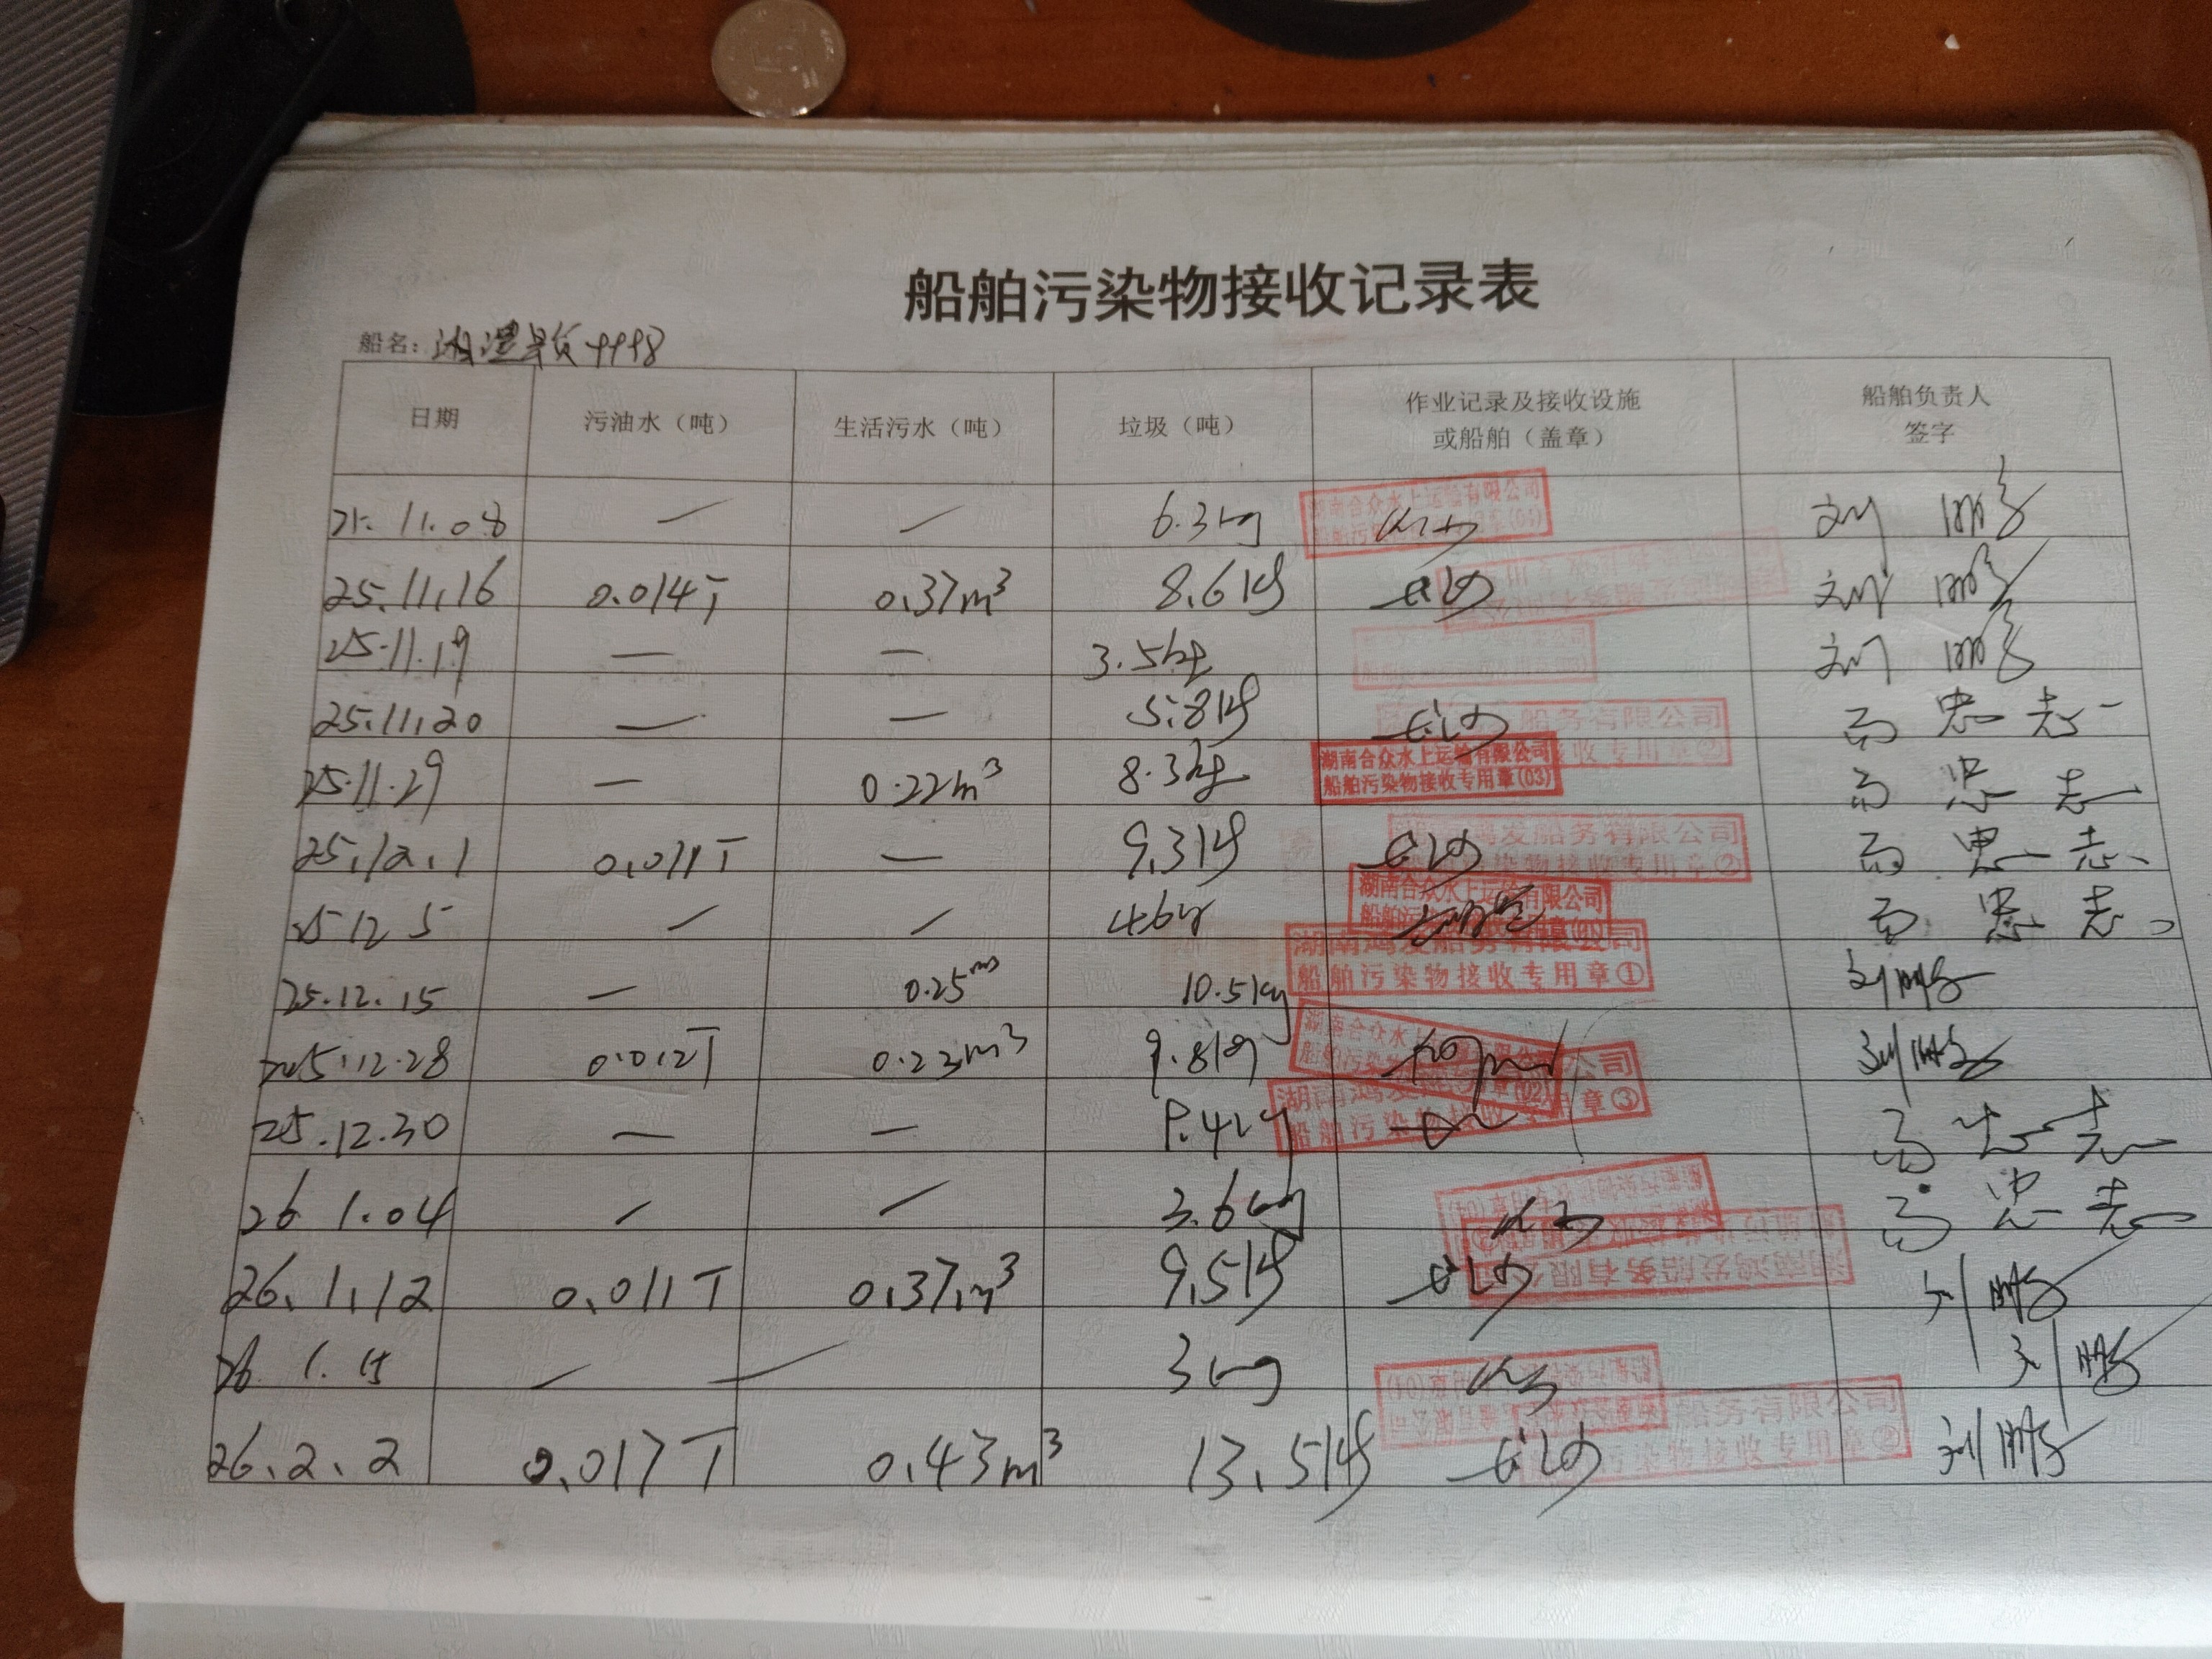 船舶污染物接收记录表
船名:
日期 污油水（吨） 生活污水（吨） 垃圾（吨） 作业记录及接收设施或船舶（盖章） 船舶负责人签字
25.11.08 — — 6.3kg 湖南合众水上运输有限公司
25.11.16 0.014T 0.37m³ 8.6kg
25.11.19 — — 3.5kg
25.11.20 — — 5.8kg 船务有限公司 接收专用章② 高忠志
25.11.29 — 0.22m³ 8.3kg 湖南合众水上运输有限公司 船舶污染物接收专用章(03) 高忠志
25.12.1 0.011T — 9.3kg 鸿发船务有限公司 污染物接收专用章② 高忠志
25 12 5 — — 4.6kg 湖南合众水上运输有限公司 高忠志
25.12.15 — 0.25m³ 10.5kg 湖南鸿发船务有限公司 船舶污染物接收专用章① 刘鹏
2025.12.28 0.012T 0.23m³ 9.8kg 湖南合众水上 刘鹏
25.12.30 — — 湖南鸿发 公司 船舶污染物接收 用章③ 高忠志
26 1.04 — — 3.6kg 高忠志
26.1.12 0.011T 0.37m³ 9.5kg 湖南鸿发船务有限公 刘鹏
26. 1. 15 — — 3kg 刘鹏
26.2.2 0.017T 0.43m³ 13.5kg 船务有限公司 污染物接收专用章② 刘鹏